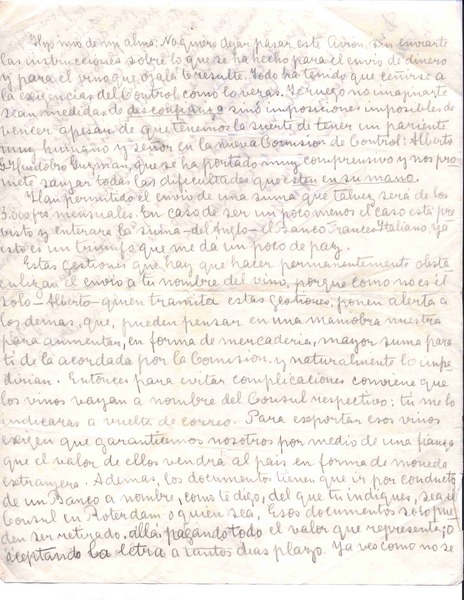 Hijo mio de mi alma: No quiero dejar pasar este Avion, sin enviarte
las instrucciones sobre lo que se ha hecho para el envio de dinero
y para el vino que, ojalá te resulte. Todo ha tenido que ceñirse a
la exigencias del Control como lo veras. Te ruego no imaginarte
sean medidas de desconfianza sinó imposiciones imposibles de
vencer apesar de que tenemos la suerte di tener un pariente
muy humano y señor en la nueva Comision de Control: Alberto
G. Huidobro Guzmán, que se ha portado muy comprensivo y nos pro-
mete sanjar todas las dificultades que esten en su mano.
Han permitido el envio de una suma que talvez será de los
3.000 frs. mensuales. En caso de ser un poco menos el caso está pre
visto y enterara la suma - del Anglo - el Banco Frances Italiano. Ya
esto es un triunfo que me da un poco de paz.
Estas gestiones que hay que hacer permanentemente obsta
culizan el envio a tu nombre del vino, porque como no es él
solo - Alberto - quien tramita estas gestiones, ponen alerta a
los demas, que, pueden pensar en una maniobra nuestra
para aumentar, en forma de mercaderia, mayor suma para
ti de la acordada por la Comision. y naturalmente lo impe
dirian. Entonces para evitar complicaciones conviene que
los vinos vayan a nombre del Consul respectivo: tu me lo
indicaras a vuelta de correo. Para exportar esos vinos
exigen que garanticemos nosotros por medio de una fianza
que el valor de ellos vendrá al pais en forma de moneda
extrangera. Ademas, los documentos tienen que ir por conducto
de un Banco a nombre, como te digo, del que tu indiques, sea el
Consul en Roterdam o quien sea. Esos documentos solo pue
den ser retirado, allá pagando todo el valor que represente; o
aceptando la letra a tantos dias plazo. Ya ves como no se